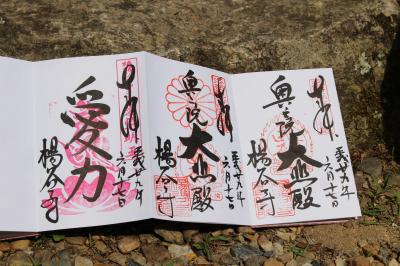 奉拝
愛力
平成廿九年
六月十七日
楊谷寺
奉拝
奥之院
大悲殿
平成廿九年
六月十七日
楊谷寺
奉拝
奥之院
大悲殿
平成廿九年
六月十七日
楊谷寺